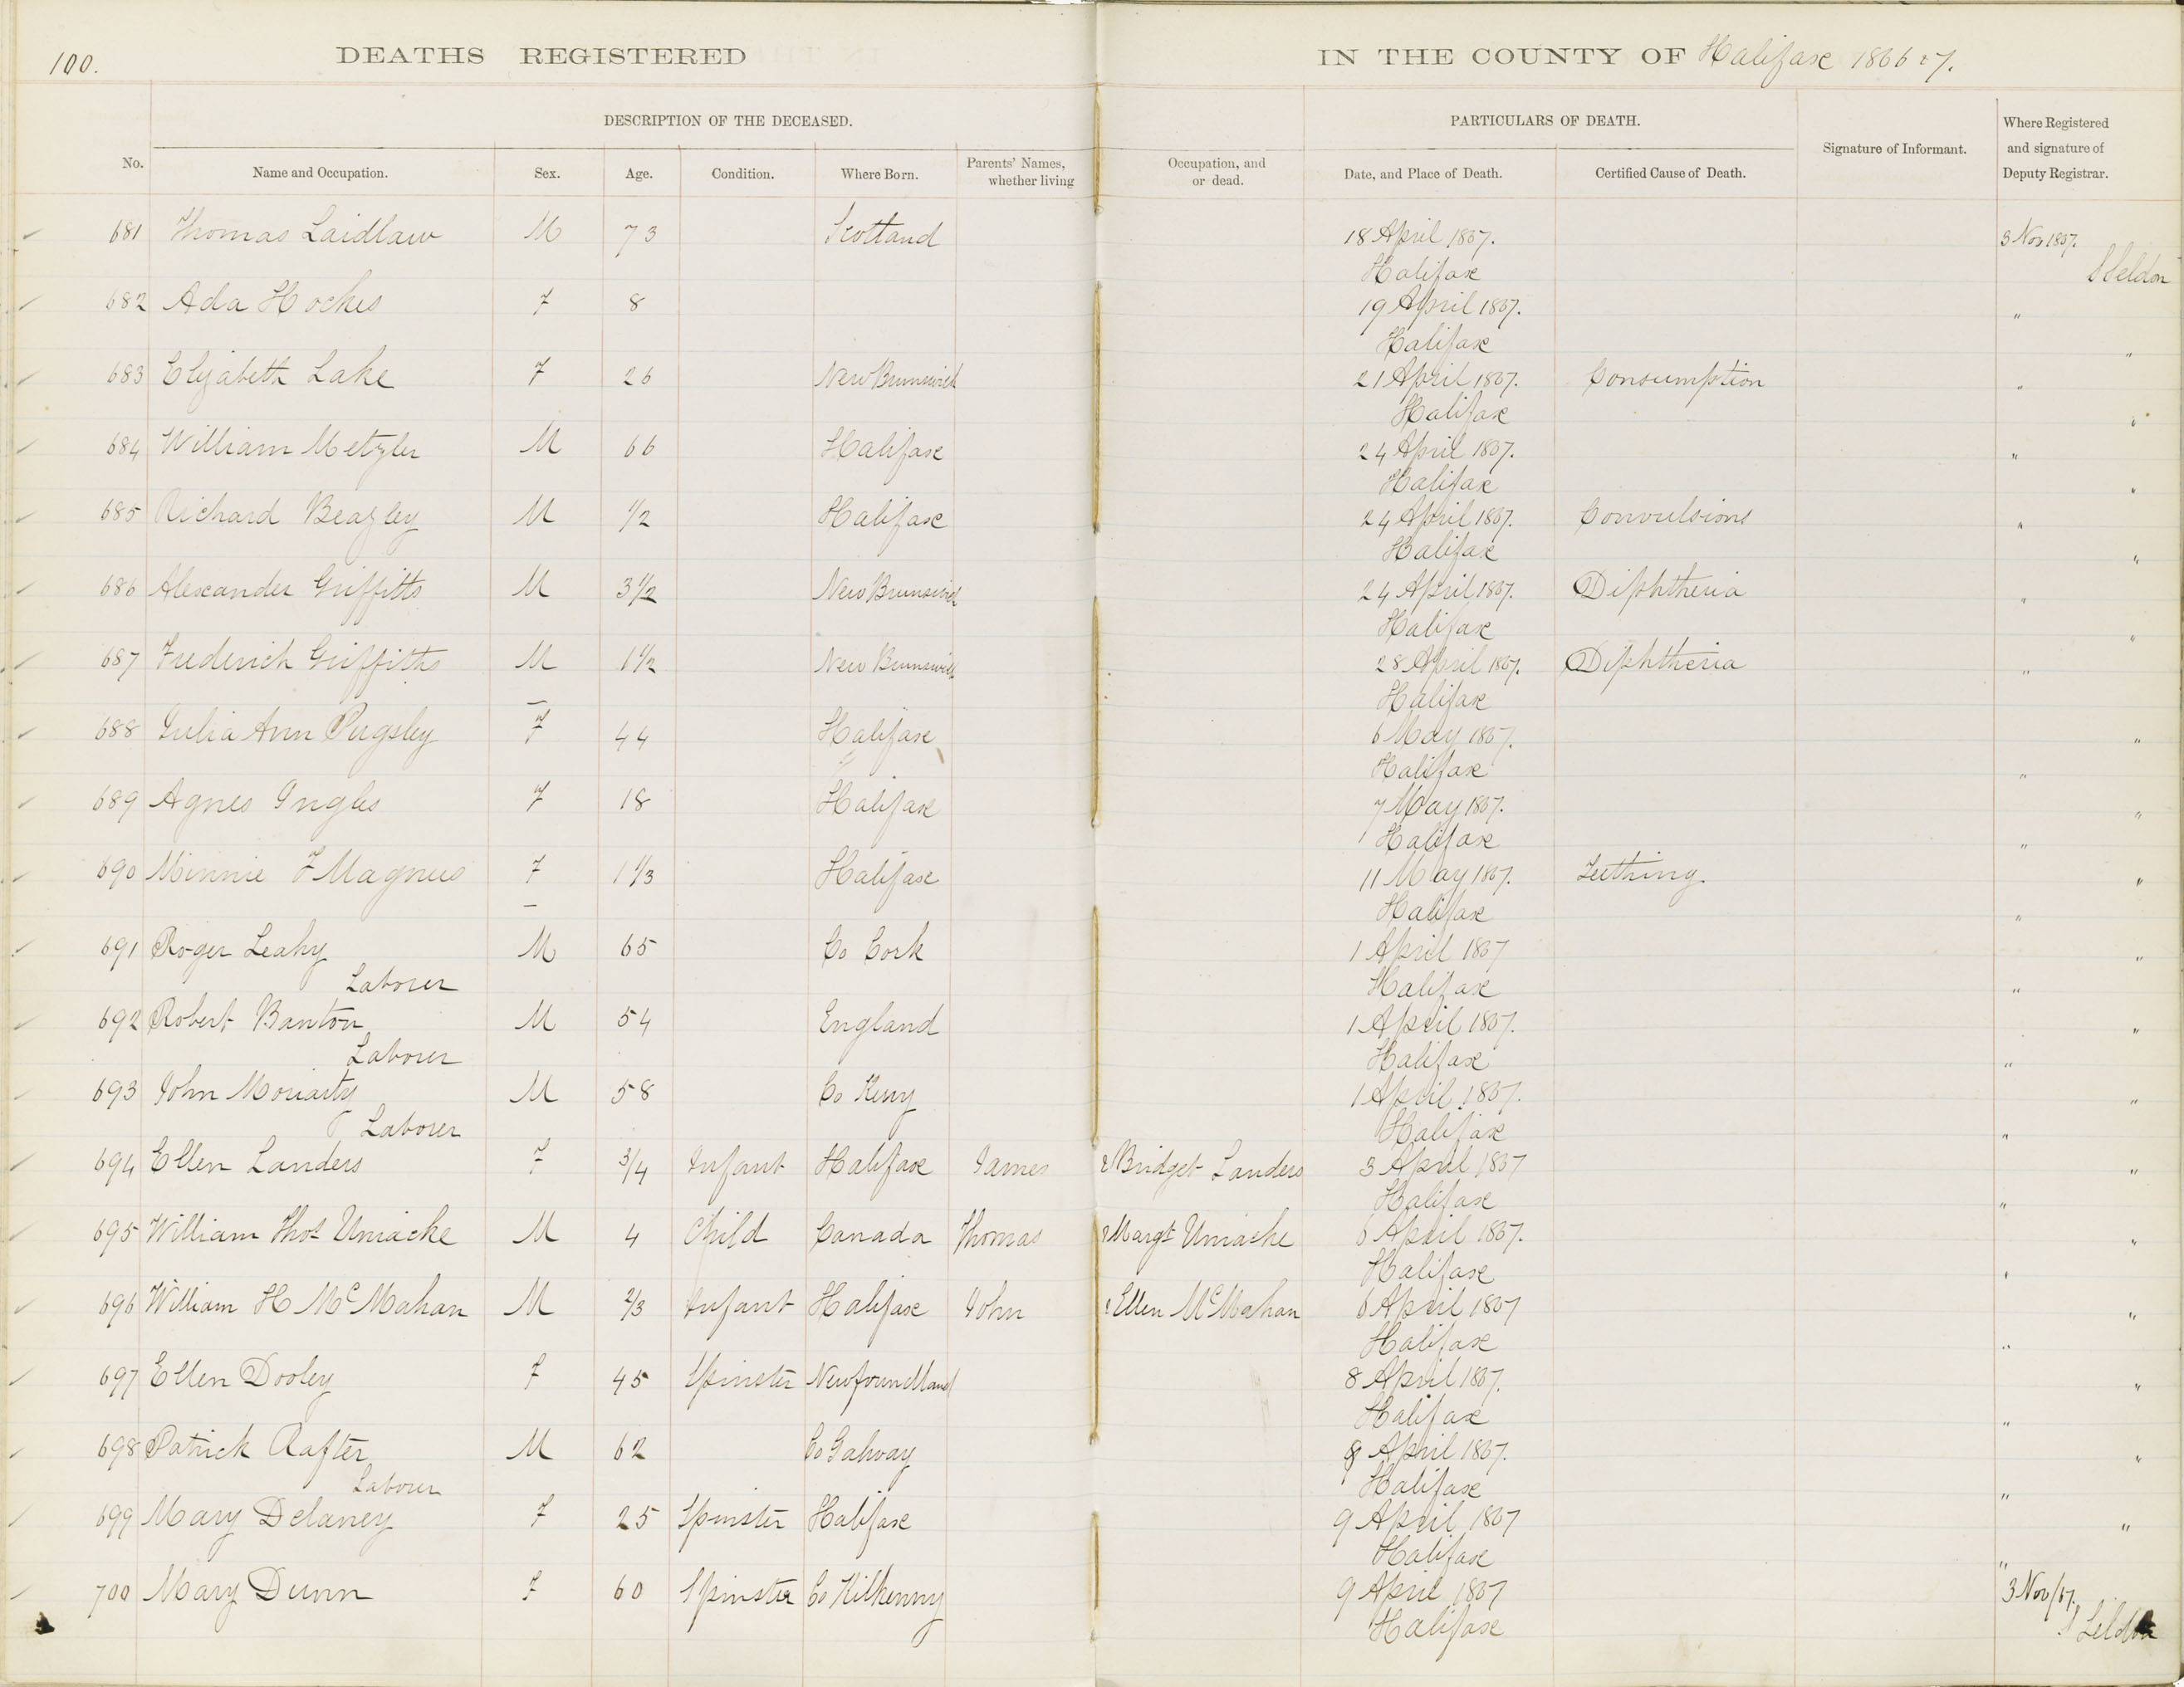 100. DEATHS REGISTERED IN THE COUNTY OF Halifax 1866 & 7.
DESCRIPTION OF THE DECEASED. PARTICULARS OF DEATH. Where Registered
No. Name and Occupation. Sex. Age. Condition. Where Born. Parents' Names, Occupation, and Date, and Place of Death. Certified Cause of Death. Signature of Informant. and signature of
whether living or dead. Deputy Registrar.
681 Thomas Laidlaw M 73 Scotland 18 April 1867. 3 Nov 1867.
Halifax Seldon
682 Ada Hockes F 8 19 April 1867. "
Halifax "
683 Elizabeth Lake F 26 New Brunswick 21 April 1867. Consumption "
Halifax "
684 William Metzler M 66 Halifax 24 April 1867. "
Halifax "
685 Richard Beazley M 1/2 Halifax 24 April 1867. Convulsions "
Halifax "
686 Alexander Griffiths M 3 1/2 New Brunswick 24 April 1867. Diphtheria "
Halifax "
687 Frederick Griffiths M 1 1/2 New Brunswick 28 April 1867. Diphtheria "
Halifax
688 Julia Ann Pugsley F 44 Halifax 6 May 1867. "
Halifax "
689 Agnes Ingles F 18 Halifax 7 May 1867. "
Halifax "
690 Minnie F Magnus F 1 1/3 Halifax 11 May 1867. Teething. "
Halifax "
691 Roger Leahy M 65 Co Cork 1 April 1867 "
Laborer Halifax "
692 Robert Banton M 54 England 1 April 1867. "
Laborer Halifax "
693 John Moriarty M 58 Co Kerry 1 April 1867. "
Laborer Halifax "
694 Ellen Landers F 3/4 Infant Halifax James & Bridget Landers 3 April 1867 "
Halifax "
695 William Thos Uniacke M 4 Child Canada Thomas & Margt Uniacke 6 April 1867. "
Halifax "
696 William H McMahan M 2/3 Infant Halifax John & Ellen McMahan 6 April 1867 "
Halifax "
697 Ellen Dooley F 45 Spinster Newfoundland 8 April 1867. "
Halifax "
698 Patrick Rafter M 62 Co Galway April 1867. "
Laborer Halifax "
699 Mary Delaney F 25 Spinster Halifax 9 April 1867 "
Halifax "
700 Mary Dunn F 60 Spinster Co Kilkenny 9 April 1867 3 Nov/67.
Halifax Seldon